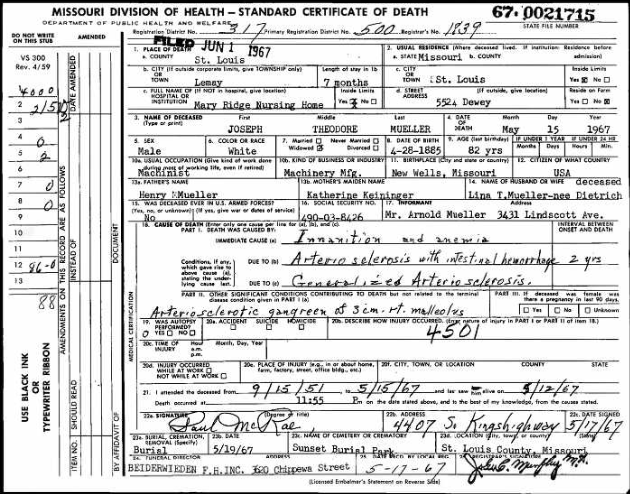 MISSOURI DIVISION OF HEALTH — STANDARD CERTIFICATE OF DEATH
67-0021715
DEPARTMENT OF PUBLIC HEALTH AND WELFARE
STATE FILE NUMBER
Registration District No. 317 Primary Registration District No. 500 Registrar's No. 1839
DO NOT WRITE ON THIS STUB
AMENDED
VS 300
Rev. 4/59
FILED JUN 1 1967
1. PLACE OF DEATH
a. COUNTY St. Louis
2. USUAL RESIDENCE (Where deceased lived. If institution: Residence before admission)
a. STATE Missouri b. COUNTY
b. CITY (If outside corporate limits, give TOWNSHIP only) OR TOWN Lemay
Length of stay in 1b 7 months
c. CITY OR TOWN St. Louis
Inside Limits Yes No
c. FULL NAME OF (If not in hospital, give location) HOSPITAL OR INSTITUTION Mary Ridge Nursing Home
Inside Limits Yes No
d. STREET ADDRESS (If outside, give location) 5524 Dewey
Reside on Farm Yes No
3. NAME OF DECEASED (Type or print)
First JOSEPH Middle THEODORE Last MUELLER
4. DATE OF DEATH Month May Day 15 Year 1967
5. SEX Male
6. COLOR OR RACE White
7. Married Never Married Widowed Divorced
8. DATE OF BIRTH 4-28-1885
9. AGE (last birthday) 82 yrs
IF UNDER 1 YEAR Months Days
IF UNDER 24 HR Hours Min.
10a. USUAL OCCUPATION (Give kind of work done during most of working life, even if retired) Machinist
10b. KIND OF BUSINESS OR INDUSTRY Machinery Mfg.
11. BIRTHPLACE (City and state or country) New Wells, Missouri
12. CITIZEN OF WHAT COUNTRY USA
13a. FATHER'S NAME Henry Mueller
13b. MOTHER'S MAIDEN NAME Katherine Keininger
14. NAME OF HUSBAND OR WIFE deceased
Lina T. Mueller-nee Dietrich
15. WAS DECEASED EVER IN U.S. ARMED FORCES? (Yes, no, or unknown) (If yes, give war or dates of service) No
16. SOCIAL SECURITY NO. 490-03-8426
Mr. Arnold Mueller 3431 Lindscott Ave.
18. CAUSE OF DEATH (Enter only one cause per line for (a), (b), and (c).
INTERVAL BETWEEN ONSET AND DEATH
PART I. DEATH WAS CAUSED BY:
IMMEDIATE CAUSE (a) Innanition and anemia
Conditions, if any, which gave rise to above cause (a), stating the underlying cause last.
DUE TO (b) Arteriosclerosis with intestinal hemorrhage 2 yrs
DUE TO (c) Generalized Arteriosclerosis.
PART II. OTHER SIGNIFICANT CONDITIONS CONTRIBUTING TO DEATH but not related to the terminal disease condition given in PART I (a)
PART III. If deceased was female was there a pregnancy in last 90 days.
Yes No Unknown
Arteriosclerotic gangreen of 3 cm. rt. malleolus
19. WAS AUTOPSY PERFORMED? YES NO
20a. ACCIDENT SUICIDE HOMICIDE
20b. DESCRIBE HOW INJURY OCCURRED. (Enter nature of injury in Part I or Part II of item 18.)
4501
20c. TIME OF INJURY Hour a.m. p.m. Month, Day, Year
20d. INJURY OCCURRED WHILE AT WORK NOT WHILE AT WORK
20e. PLACE OF INJURY (e.g., in or about home, farm, factory, street, office bldg., etc.)
20f. CITY, TOWN, OR LOCATION COUNTY STATE
21. I attended the deceased from 9/15/51 to 5/15/67 and last saw alive on 5/12/67
Death occurred at 11:55 P m on the date stated above, and to the best of my knowledge, from the causes stated.
22a. SIGNATURE (Degree or title) Paul McRae
22b. ADDRESS 4407 So Kingshighway
22c. DATE SIGNED 5/17/67
23a. BURIAL, CREMATION, REMOVAL (Specify) Burial
23b. DATE 5/19/67
23c. NAME OF CEMETERY OR CREMATORY Sunset Burial Park
23d. LOCATION (City, town, or county) (State) St. Louis County, Missouri
24. FUNERAL DIRECTOR ADDRESS
BEIDERWIEDEN F.H.INC. 3620 Chippewa Street
5-17-67
John C. Murphy M.D.
(Licensed Embalmer's Statement on Reverse Side)
USE BLACK INK OR TYPEWRITER RIBBON
AMENDMENTS ON THIS RECORD ARE AS FOLLOWS
ITEM NO.
SHOULD READ
INSTEAD OF
DATE AMENDED
BY AFFIDAVIT OF
DOCUMENT
MEDICAL CERTIFICATION